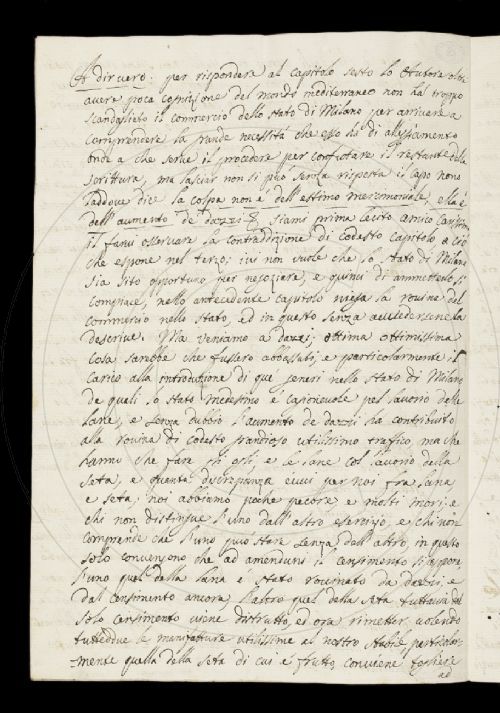 A dir vero: per rispondere al capitolo sesto lo Autore oltre
avere poca cognizione del mondo mediterraneo non ha troppo
scandagliato il commercio dello stato di Milano per arrivare a
comprendere la grande necessità che esso hà di
onde a che serve il procedere per confutare il restante della
scrittura, ma lasciar non si può senza risposta il capo nono
laddove dice la colpa non è dell'estimo mercimoniale, e là è
dell'aumento de dazzi &. siami prima lecito amico carissimo
il farvi osservare la contraddizione di codesto capitolo a ciò
che espone nel terzo; ivi non vuole che lo stato di Milano
sia sito opportuno per negoziare, e quivi di ammetterlo si
compiace, nello antecedente capitolo niega la rovina del
commercio nello stato, ed in questo senza avvedersene la
descrive. Ma veniamo a dazzi; ottima ottimissima
cosa sarebbe che fussero abbassati, e particolarmente il
carico alla introduzione di que' generi nello stato di Milano
de quali lo stato medesimo è cagionevole pel lavoro delle
lane, e senza dubbio l'aumento de dazzi ha contribuito
alla rovina di codesto grandioso utilissimo traffico, ma che
hanno che fare gli e le lane col lavorio della
seta, e quanta discrepanza evvi per noi fra lana
e seta, noi abbiamo poche pecore e molti mori; e
chi non distingue l'uno dall'altro esercizio, e chi non
comprende che l'uno può stare senza dell'altro, in questo
solo convengono che ad amenduni il censimento si oppone
l'uno quel della lana è stato rovinato da dazzi, e
dal censimento ancora, l'altro quel della seta tuttavia dal
solo censimento viene distrutto, ed ora rimetter volendo
tutteddue le manifatture utilissime al nostro stabile particolar-
-mente quella della seta di cui è frutto, conviene togliere
ad